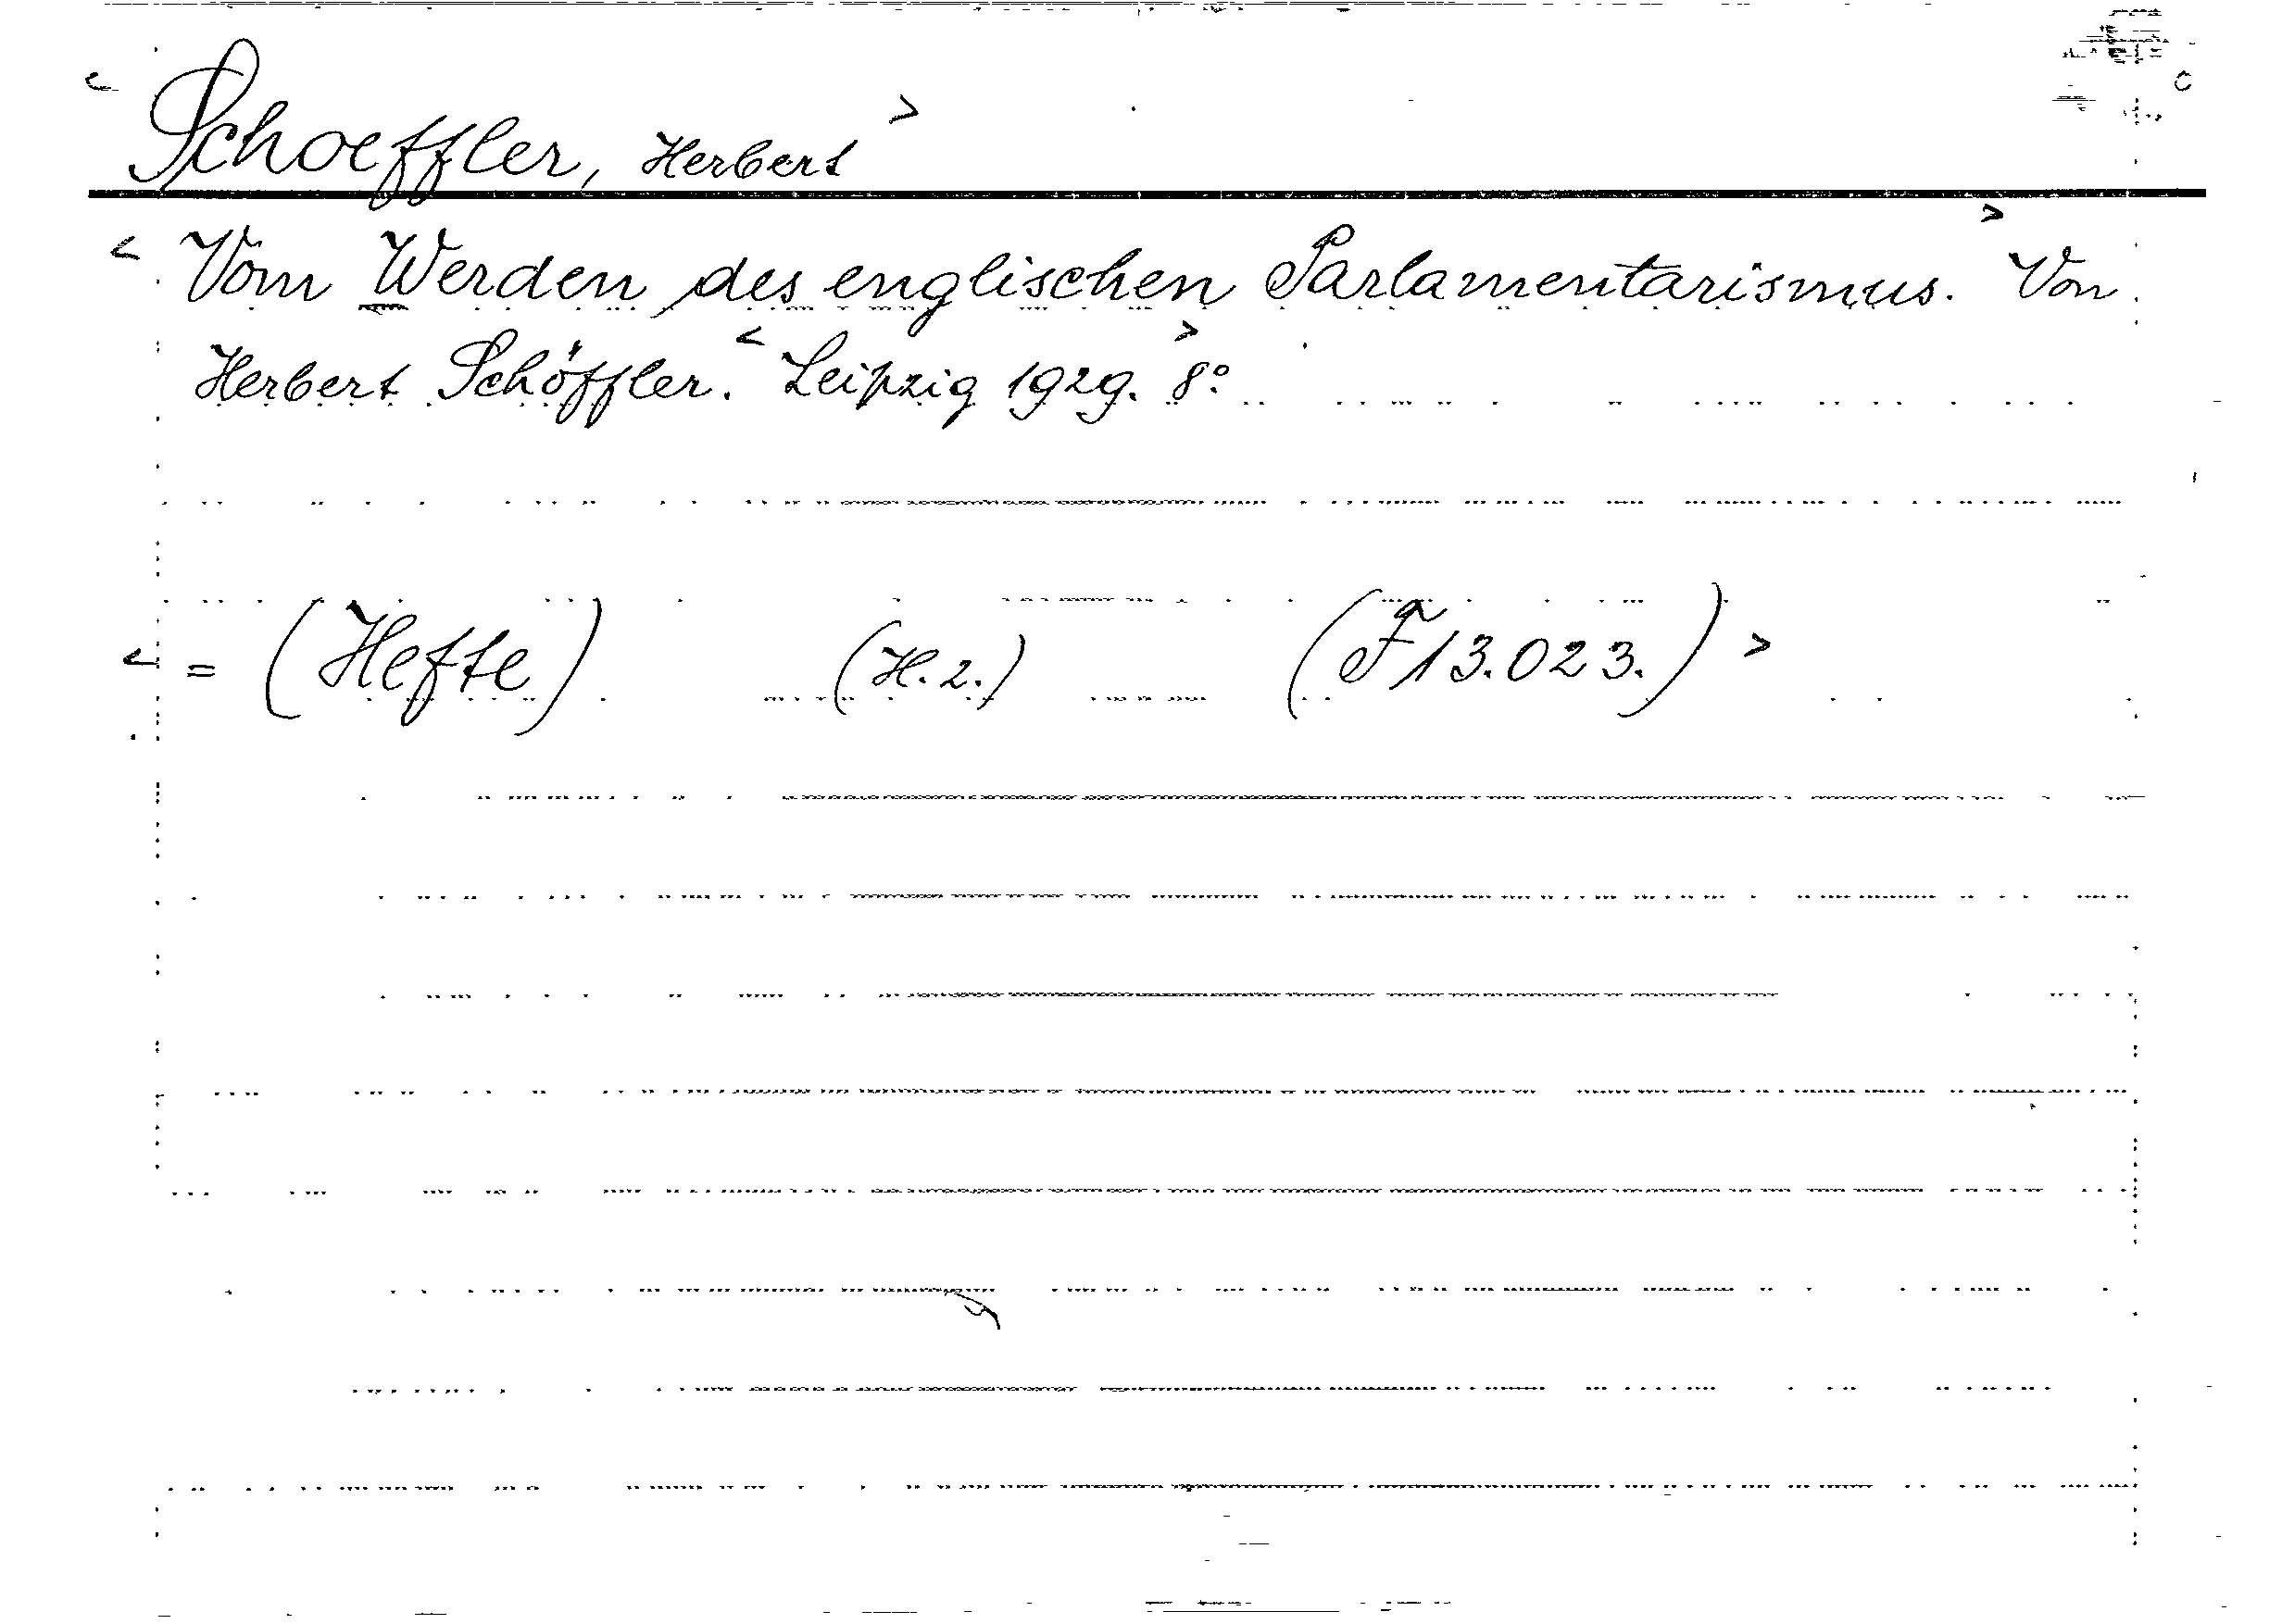 < Schoeffler, Herbert >
< Vom Werden des englischen Parlamentarismus. > Von
Herbert Schöffler. < Leipzig 1929. > 8°
< = (Hefte) (H. 2.) (F 13.023.) >